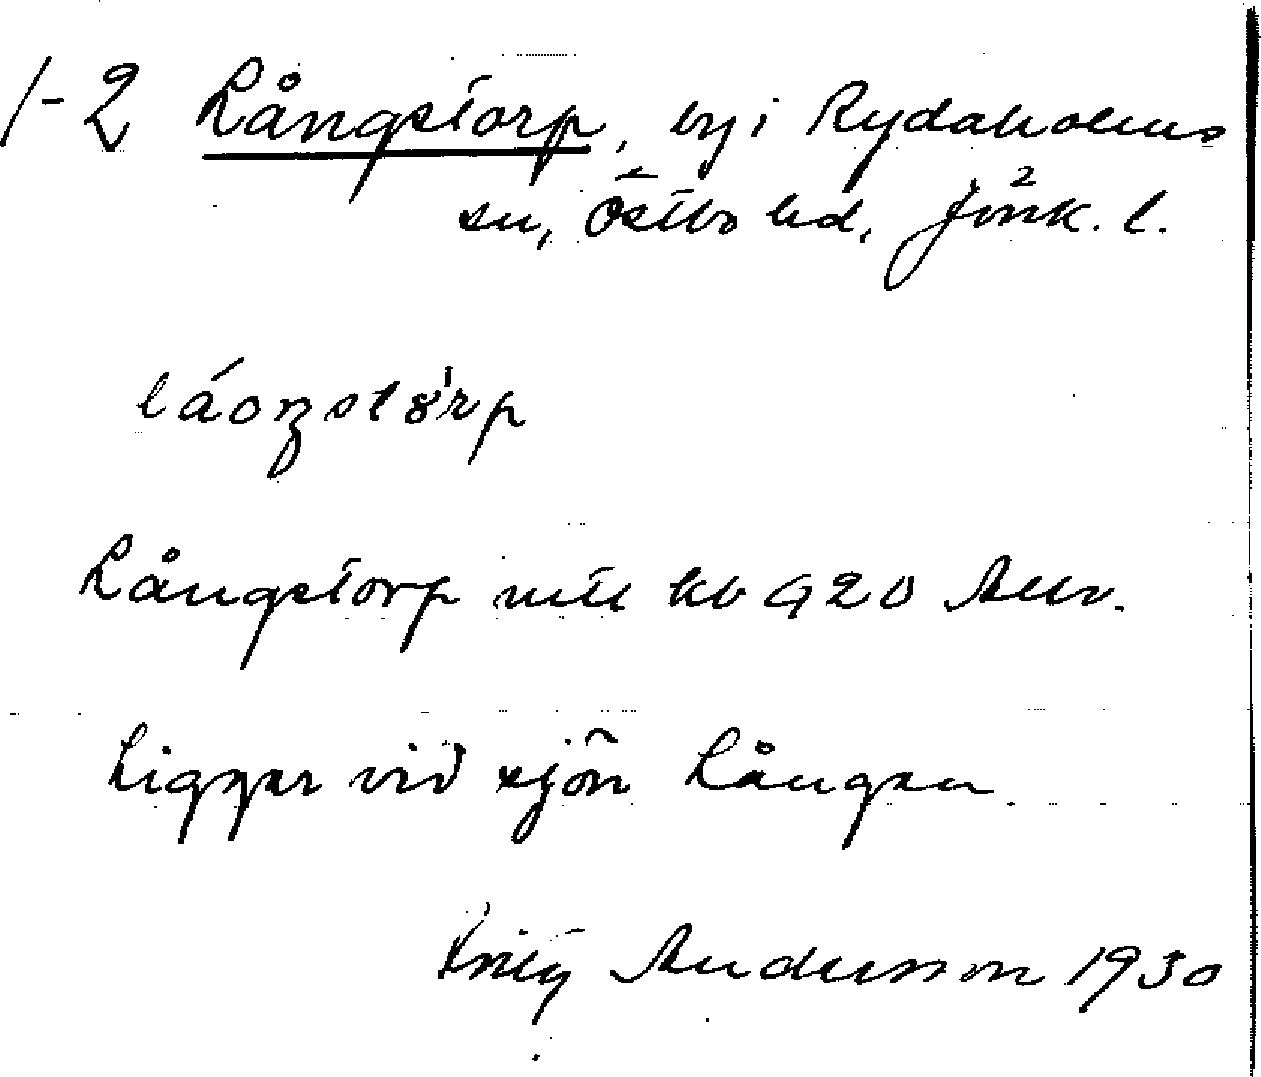 1-2 Långstorp, by i Rydaholms
sn, Östbo hd, Jönk. l.
2
láoŋstòrp
Långstorp mtl kb 920 Allv.
Ligger vid sjön Lången
Andersson 1930